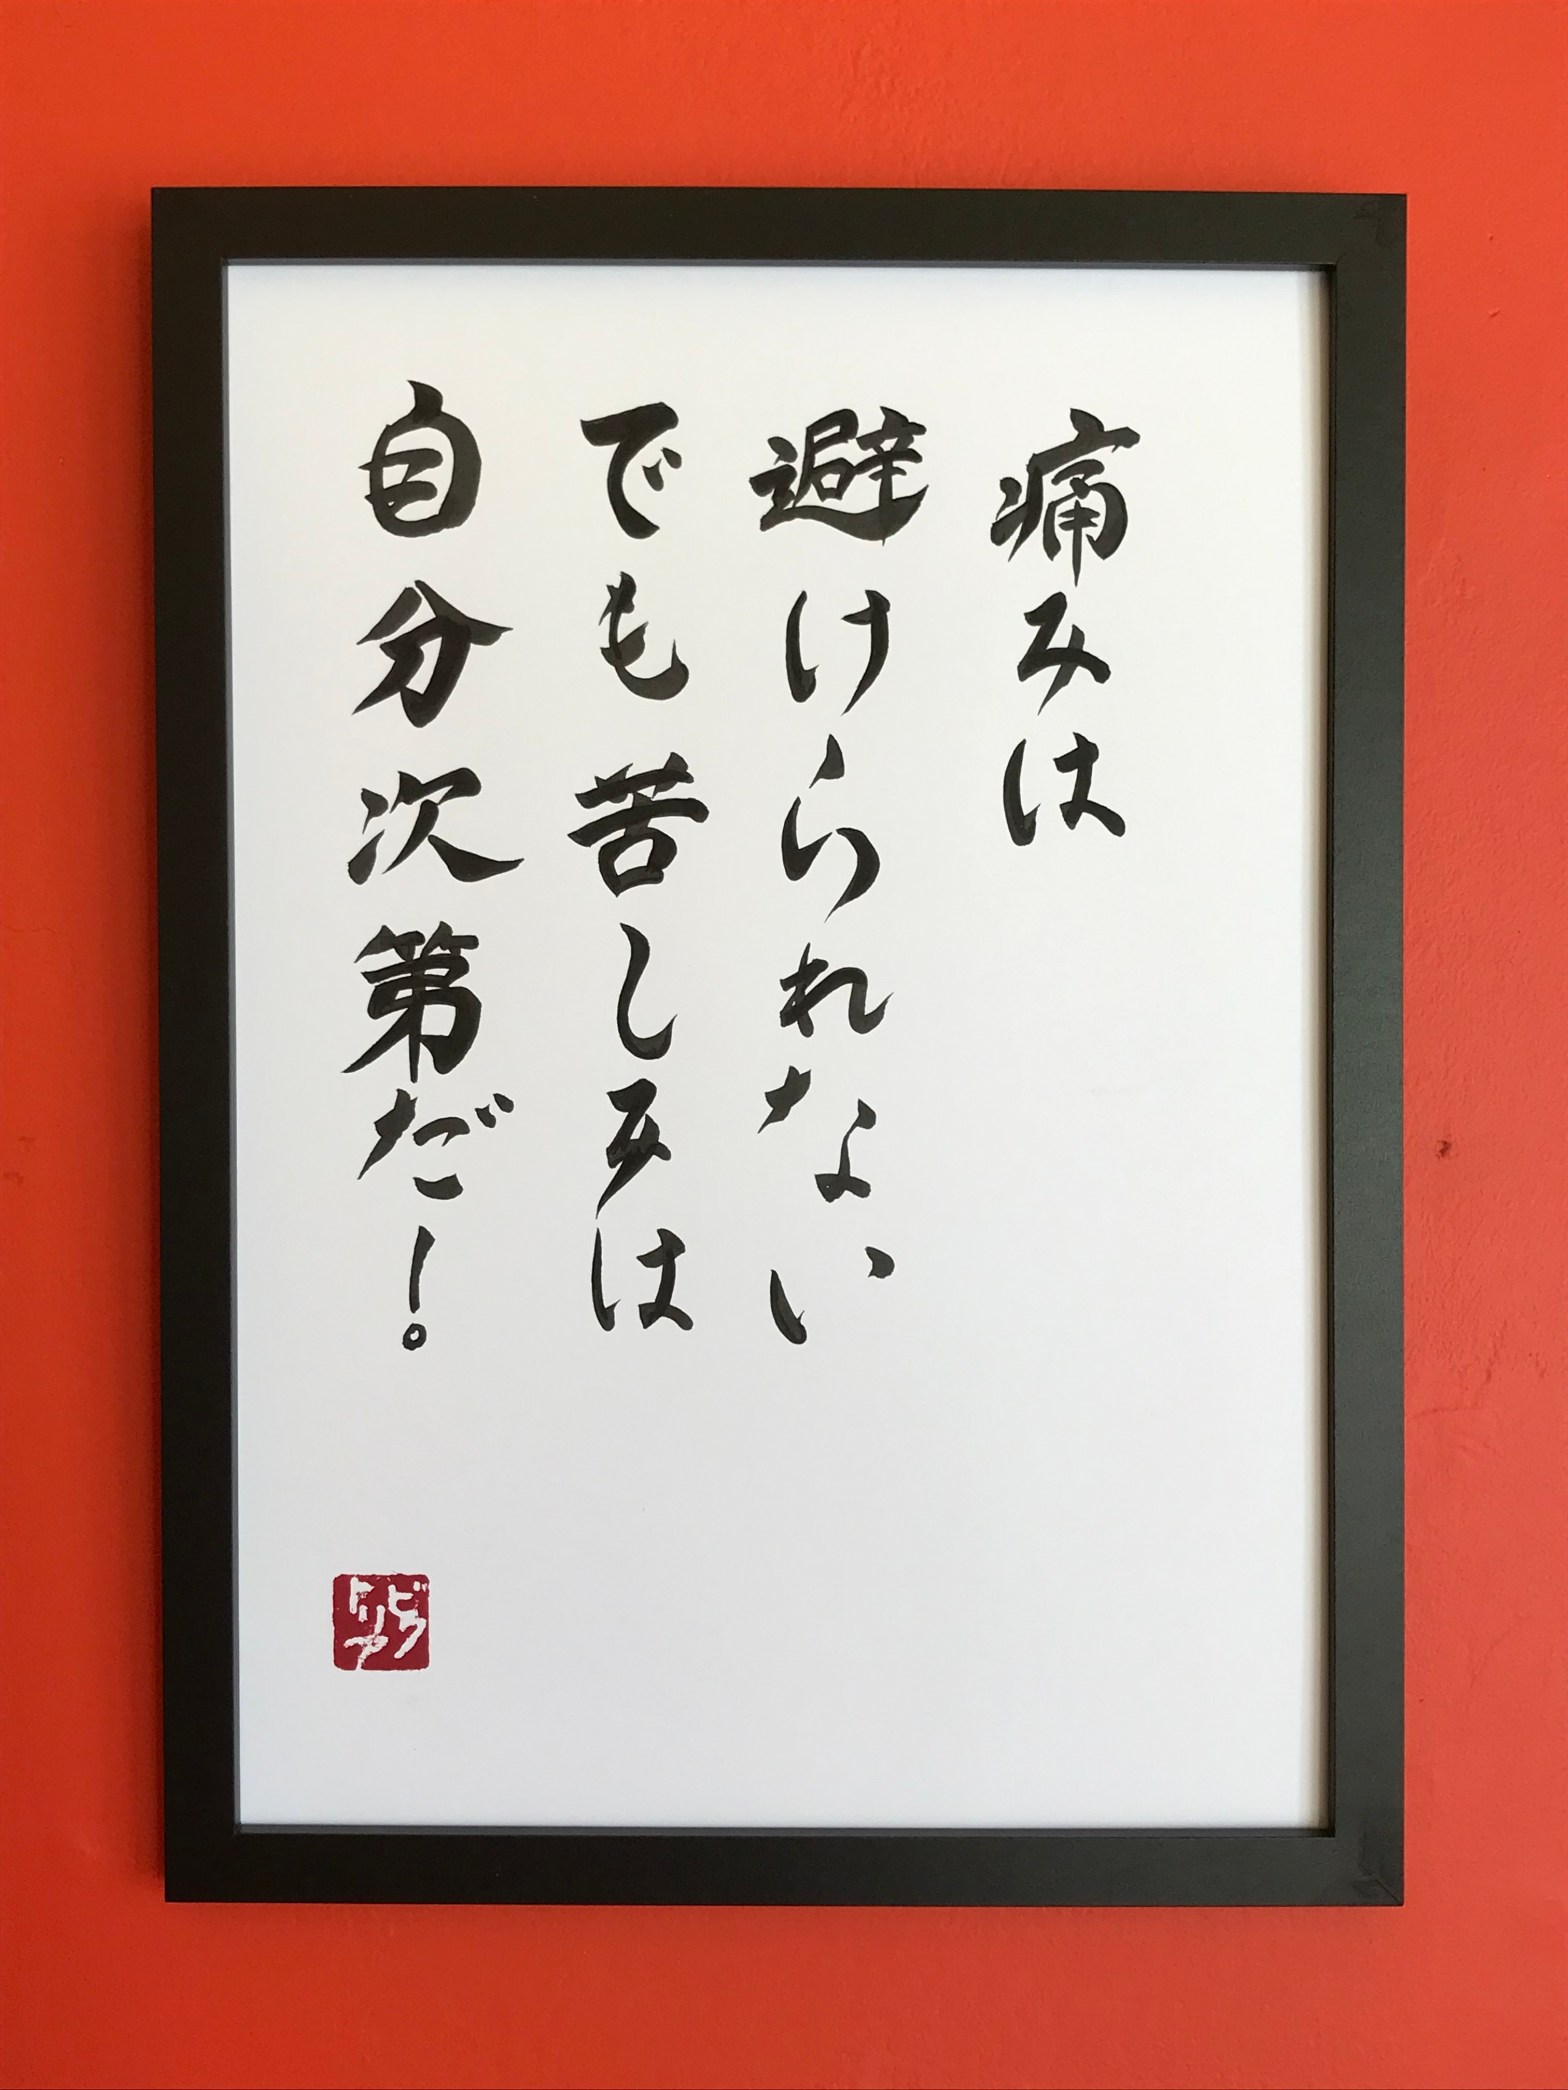 痛みは
避けられない
でも苦しみは
自分次第だ!。
ビク
トリア